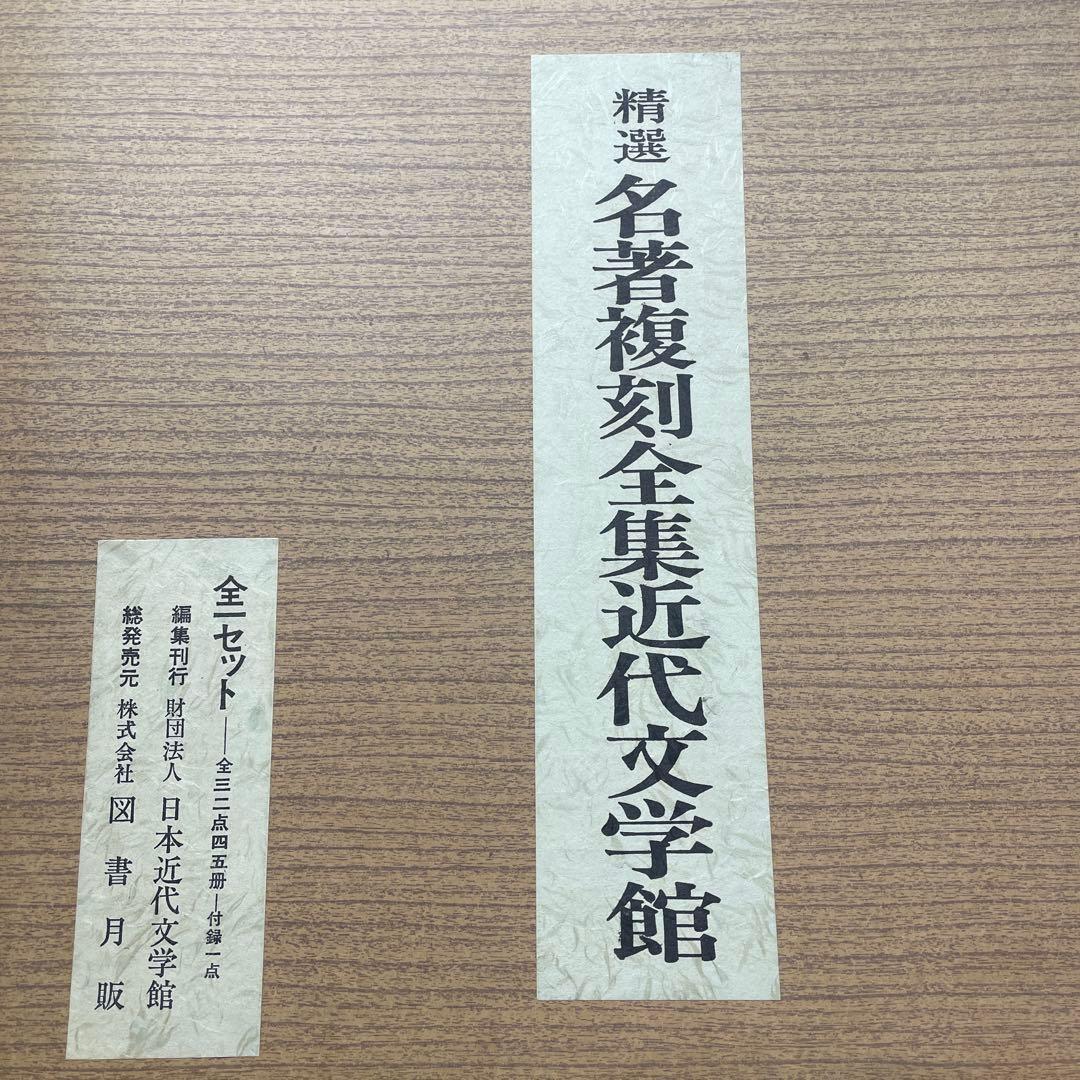 精選 名著複刻全集近代文学館
全一セット──全三二点四五册─付録一点
編集刊行 財団法人 日本近代文学館
総発売元 株式会社 図書月販